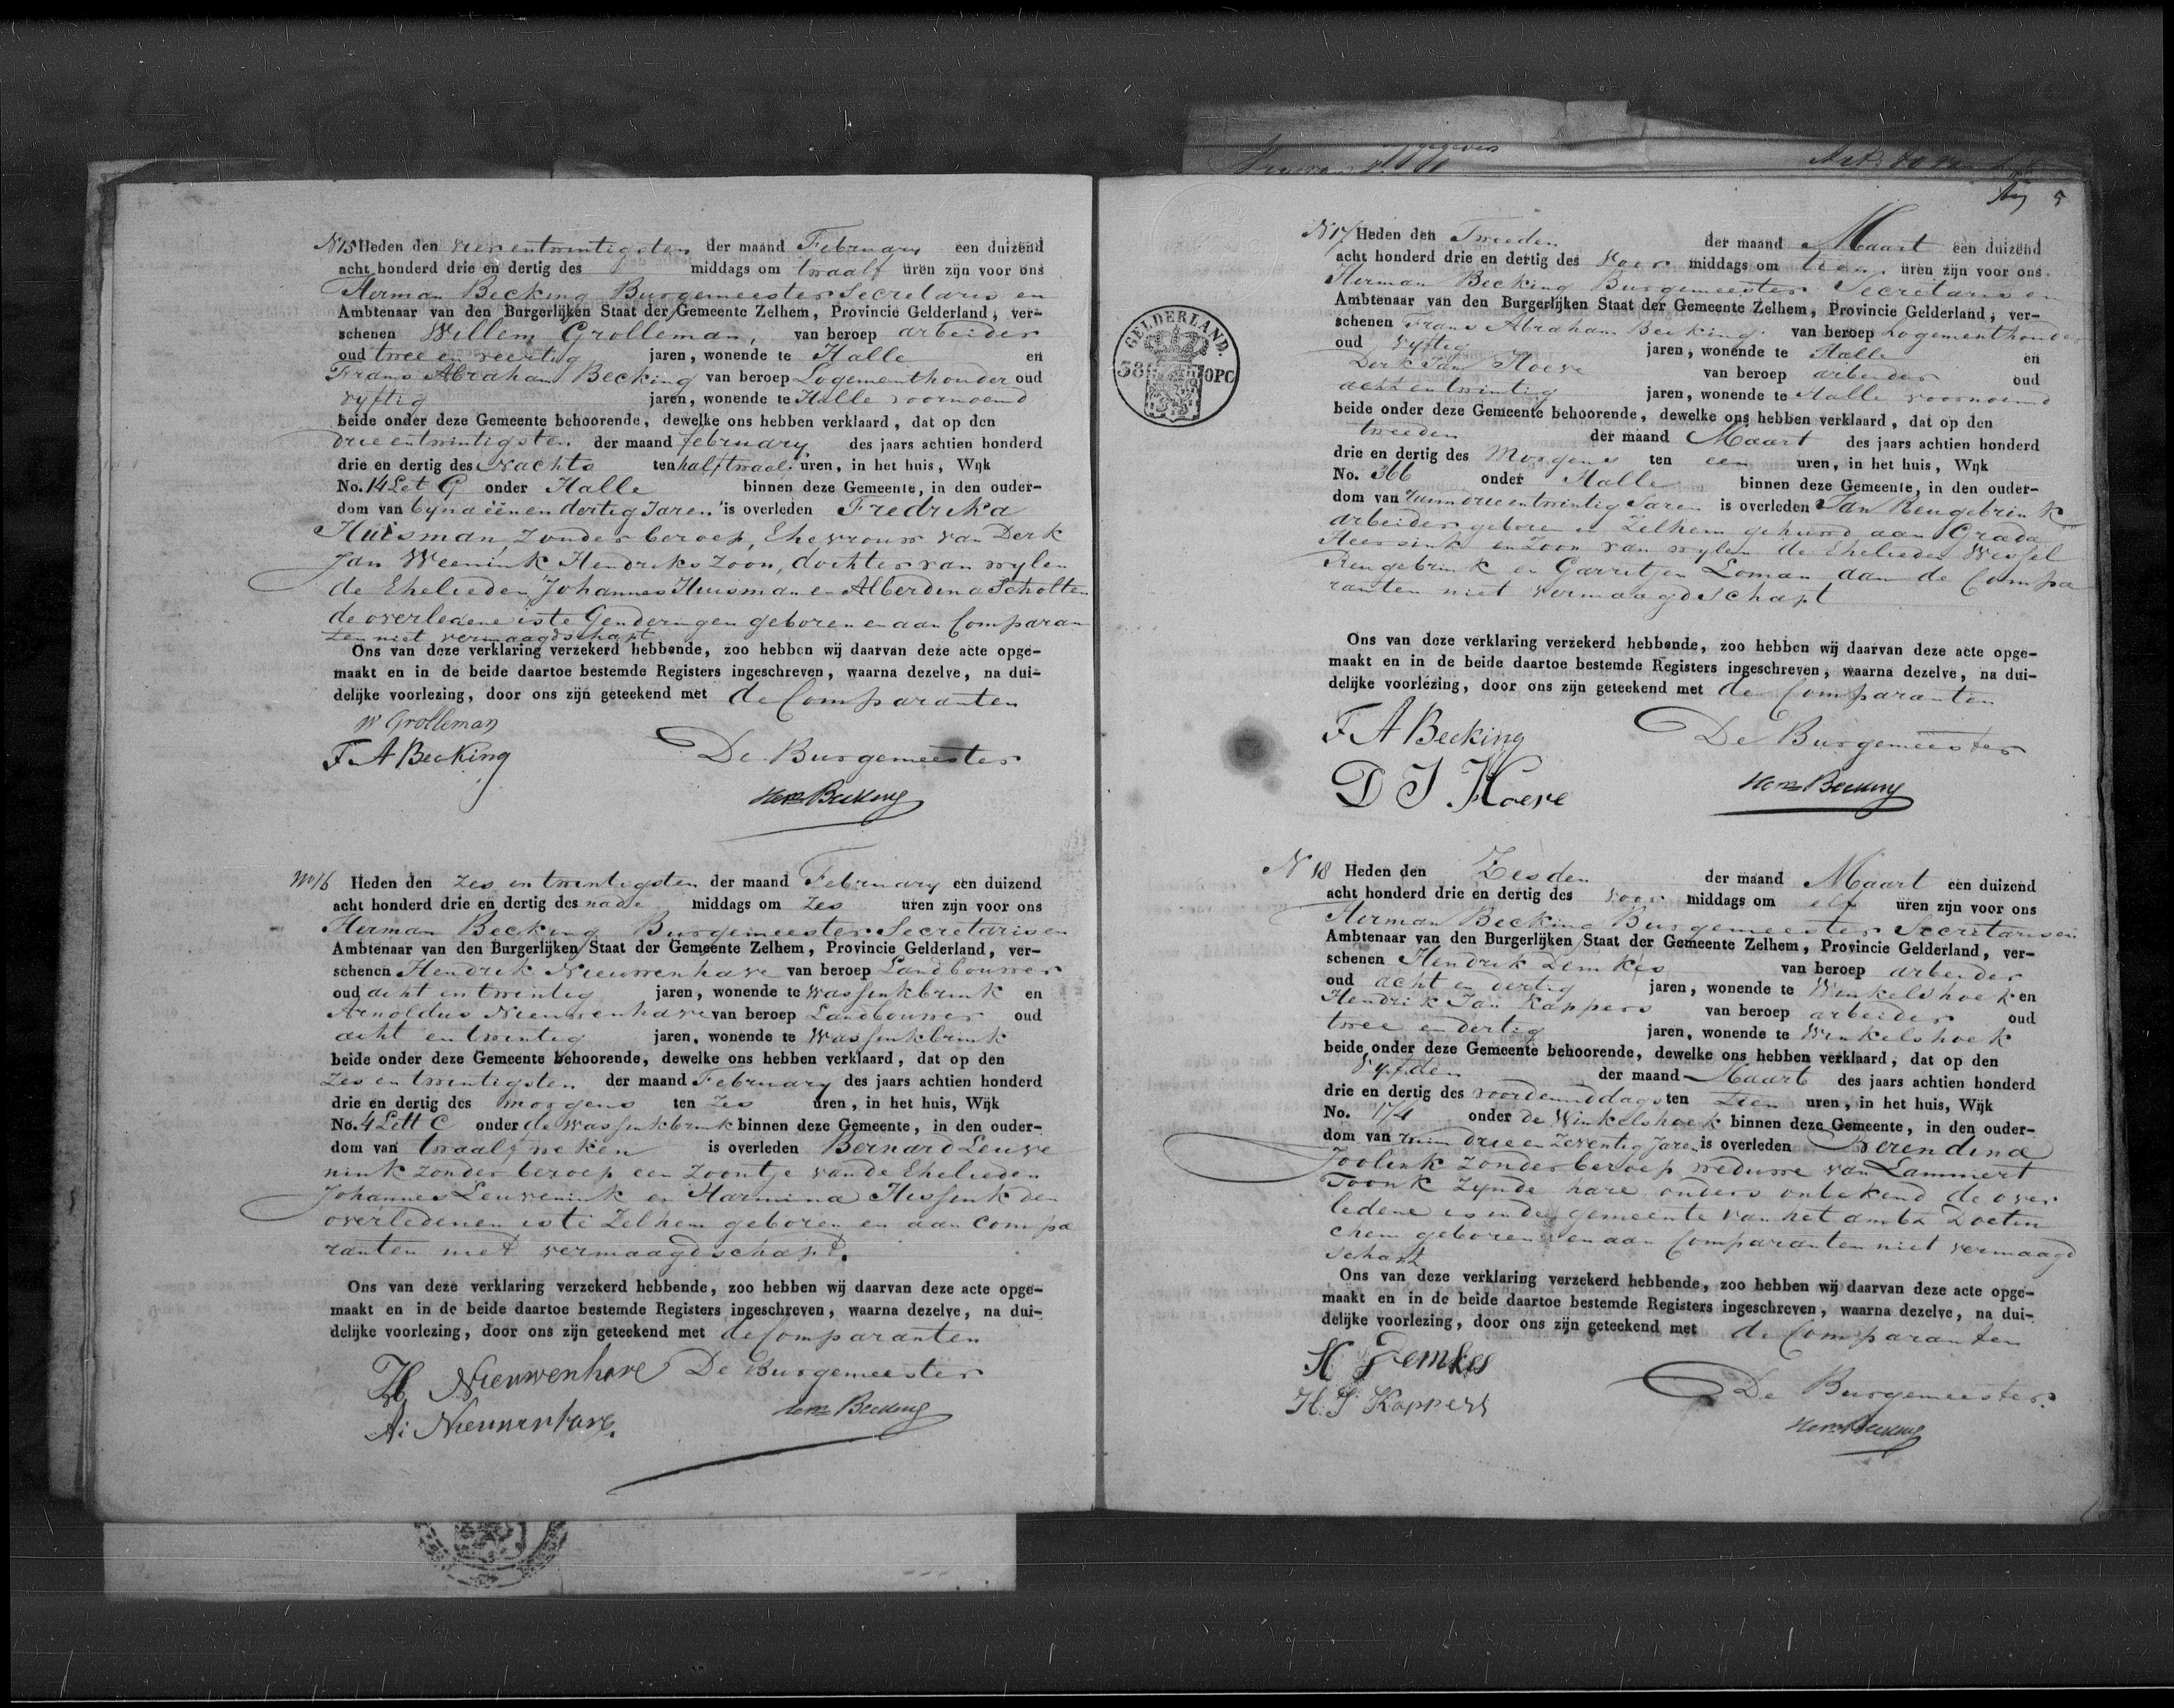 N 15 Heden den vier en twintigsten der maand February een duizend
acht honderd drie en dertig des middags om twaalf uren zijn voor ons
Herman Becking Burgemeester Secretaris en
Ambtenaar van den Burgerlijken Staat der Gemeente Zelhem, Provincie Gelderland, ver-
schenen Willem Grolleman, van beroep arbeider
oud twee en veertig jaren, wonende te Halle en
Frans Abraham Becking van beroep Logementhouder oud
vyftig jaren, wonende te Halle voornoemd
beide onder deze Gemeente behoorende, dewelke ons hebben verklaard, dat op den
drie entwintigsten der maand february des jaars achtien honderd
drie en dertig des nachts ten half twaalf uren, in het huis, Wijk
No. 14 Let G onder Halle binnen deze Gemeente, in den ouder-
dom van byna eenen dertig Jaren is overleden Fredrika
Huisman, Zonder beroep, Ehevrouw van Derk
Jan Weenink Hendriks Zoon, dochter van wylen
de Ehelieden Johannes Huisman en Alberdina Scholten
de overledene is te Genderingen geboren en aan Comparan
ten niet vermaagdschapt
Ons van deze verklaring verzekerd hebbende, zoo hebben wij daarvan deze acte opge-
maakt en in de beide daartoe bestemde Registers ingeschreven, waarna dezelve, na dui-
delijke voorlezing, door ons zijn geteekend met de Comparanten
W Grolleman
F A Becking De Burgemeester
Herm Becking
No 16 Heden den zes en twintigsten der maand February een duizend
acht honderd drie en dertig des nade middags om zes uren zijn voor ons
Herman Becking Burgemeester Secretaris en
Ambtenaar van den Burgerlijken Staat der Gemeente Zelhem, Provincie Gelderland, ver-
schenen Hendrik Nieuwenhave van beroep Landbouwer
oud acht en twintig jaren, wonende te Wassinkbrink en
Arnoldus Nieuwenhave van beroep Landbouwer oud
acht en twintig jaren, wonende te Wassinkbrink
beide onder deze Gemeente behoorende, dewelke ons hebben verklaard, dat op den
Zes en twintigsten der maand February des jaars achtien honderd
drie en dertig des morgens ten zes uren, in het huis, Wijk
No. 4 Lett C onder de Wassinkbrink binnen deze Gemeente, in den ouder-
dom van twaalf weken is overleden Bernard Leuve
nink zonder beroep een Zoontje van de Ehelieden
Johannes Leuvenink en Harmina Hissink den
overledenen is te Zelhem geboren en aan compa
ranten niet vermaagdschapt.
Ons van deze verklaring verzekerd hebbende, zoo hebben wij daarvan deze acte opge-
maakt en in de beide daartoe bestemde Registers ingeschreven, waarna dezelve, na dui-
delijke voorlezing, door ons zijn geteekend met de Comparanten
H Nieuwenhave De Burgemeester
A: Nieuwenhave. Herm Becking
5
GELDERLAND.
38 OPC
N 17 Heden den Tweeden der maand Maart een duizend
acht honderd drie en dertig des voor middags om tien uren zijn voor ons
Herman Becking Burgemeester Secretaris en
Ambtenaar van den Burgerlijken Staat der Gemeente Zelhem, Provincie Gelderland, ver-
schenen Frans Abraham Becking van beroep Logementhouder
oud vyftig jaren, wonende te Halle en
Derk Jan Hoeve van beroep arbeider oud
acht en twintig jaren, wonende te Halle voornoemd
beide onder deze Gemeente behoorende, dewelke ons hebben verklaard, dat op den
tweeden der maand Maart des jaars achtien honderd
drie en dertig des Morgens ten een uren, in het huis, Wijk
No. 366 onder Halle binnen deze Gemeente, in den ouder-
dom van ruim drie entwintig Jaren is overleden Jan Reugebrink
arbeider geboren in Zelhem gehuwd aan Grada
Heersink en Zoon van wylen de Ehelieden Wessel
Reugebrink en Garritjen Loman aan de Compa
ranten niet vermaagdschapt
Ons van deze verklaring verzekerd hebbende, zoo hebben wij daarvan deze acte opge-
maakt en in de beide daartoe bestemde Registers ingeschreven, waarna dezelve, na dui-
delijke voorlezing, door ons zijn geteekend met de Comparanten
F A Becking De Burgemeester
D J Hoeve Herm Becking
N 18 Heden den Zesden der maand Maart een duizend
acht honderd drie en dertig des voor middags om elf uren zijn voor ons
Herman Becking Burgemeester Secretaris en
Ambtenaar van den Burgerlijken Staat der Gemeente Zelhem, Provincie Gelderland, ver-
schenen Hendrik Demkes van beroep arbeider
oud acht en dertig jaren, wonende te Winkelshoek en
Hendrik Jan Kappers van beroep arbeider oud
twee en dertig jaren, wonende te Winkelshoek
beide onder deze Gemeente behoorende, dewelke ons hebben verklaard, dat op den
Vyfden der maand Maart des jaars achtien honderd
drie en dertig des voordemiddags ten tien uren, in het huis, Wijk
No. 174 onder de Winkelshoek binnen deze Gemeente, in den ouder-
dom van ruim drie en Zeventig Jaren is overleden Berendina
Joolink zonder beroep weduwe van Lammert
Toonk zynde hare ouders onbekend de over
ledene is in de gemeente van het ambt Doetin
chem geboren en aan Comparanten niet vermaagd
schapt
Ons van deze verklaring verzekerd hebbende, zoo hebben wij daarvan deze acte opge-
maakt en in de beide daartoe bestemde Registers ingeschreven, waarna dezelve, na dui-
delijke voorlezing, door ons zijn geteekend met de Comparanten
H Demkes
H. J. Kappers De Burgemeester.
Herm Becking